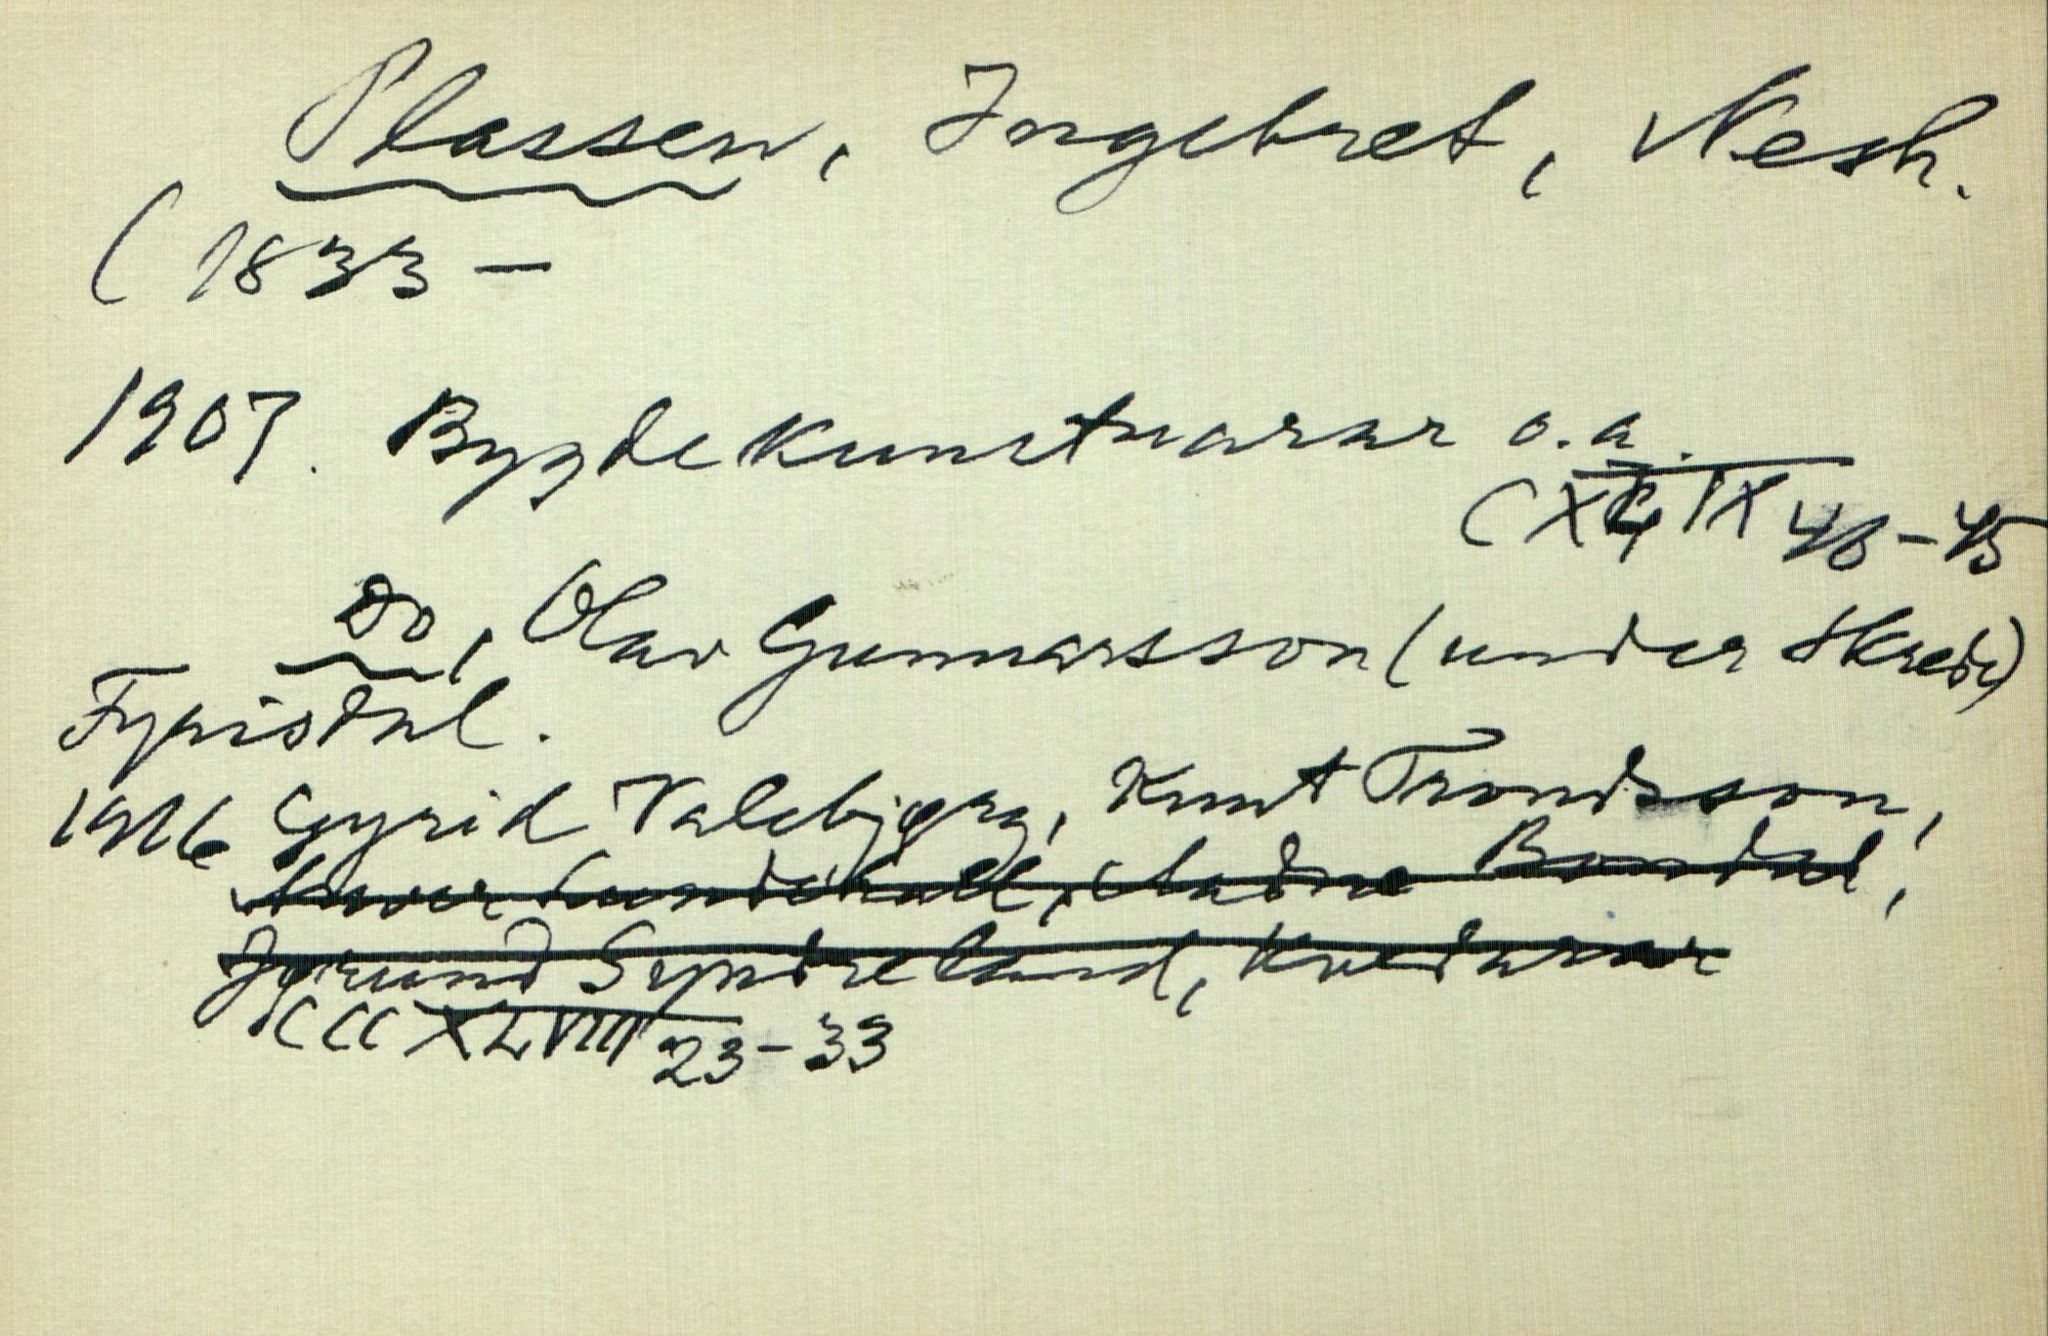 Plassen, Ingebret, Nesh.
( 1833 –
1907. Bygdekunstnarar o.a.
CXLIX 43-45
Do, Olav Gunnarsson (under Skredi)
Fyrisdal.
1916 Gyrid Valebjørg, Knut Trondsson,
Bondal,
Jørund Syndreland, Kvedarar
CCCXLVIII 23-33